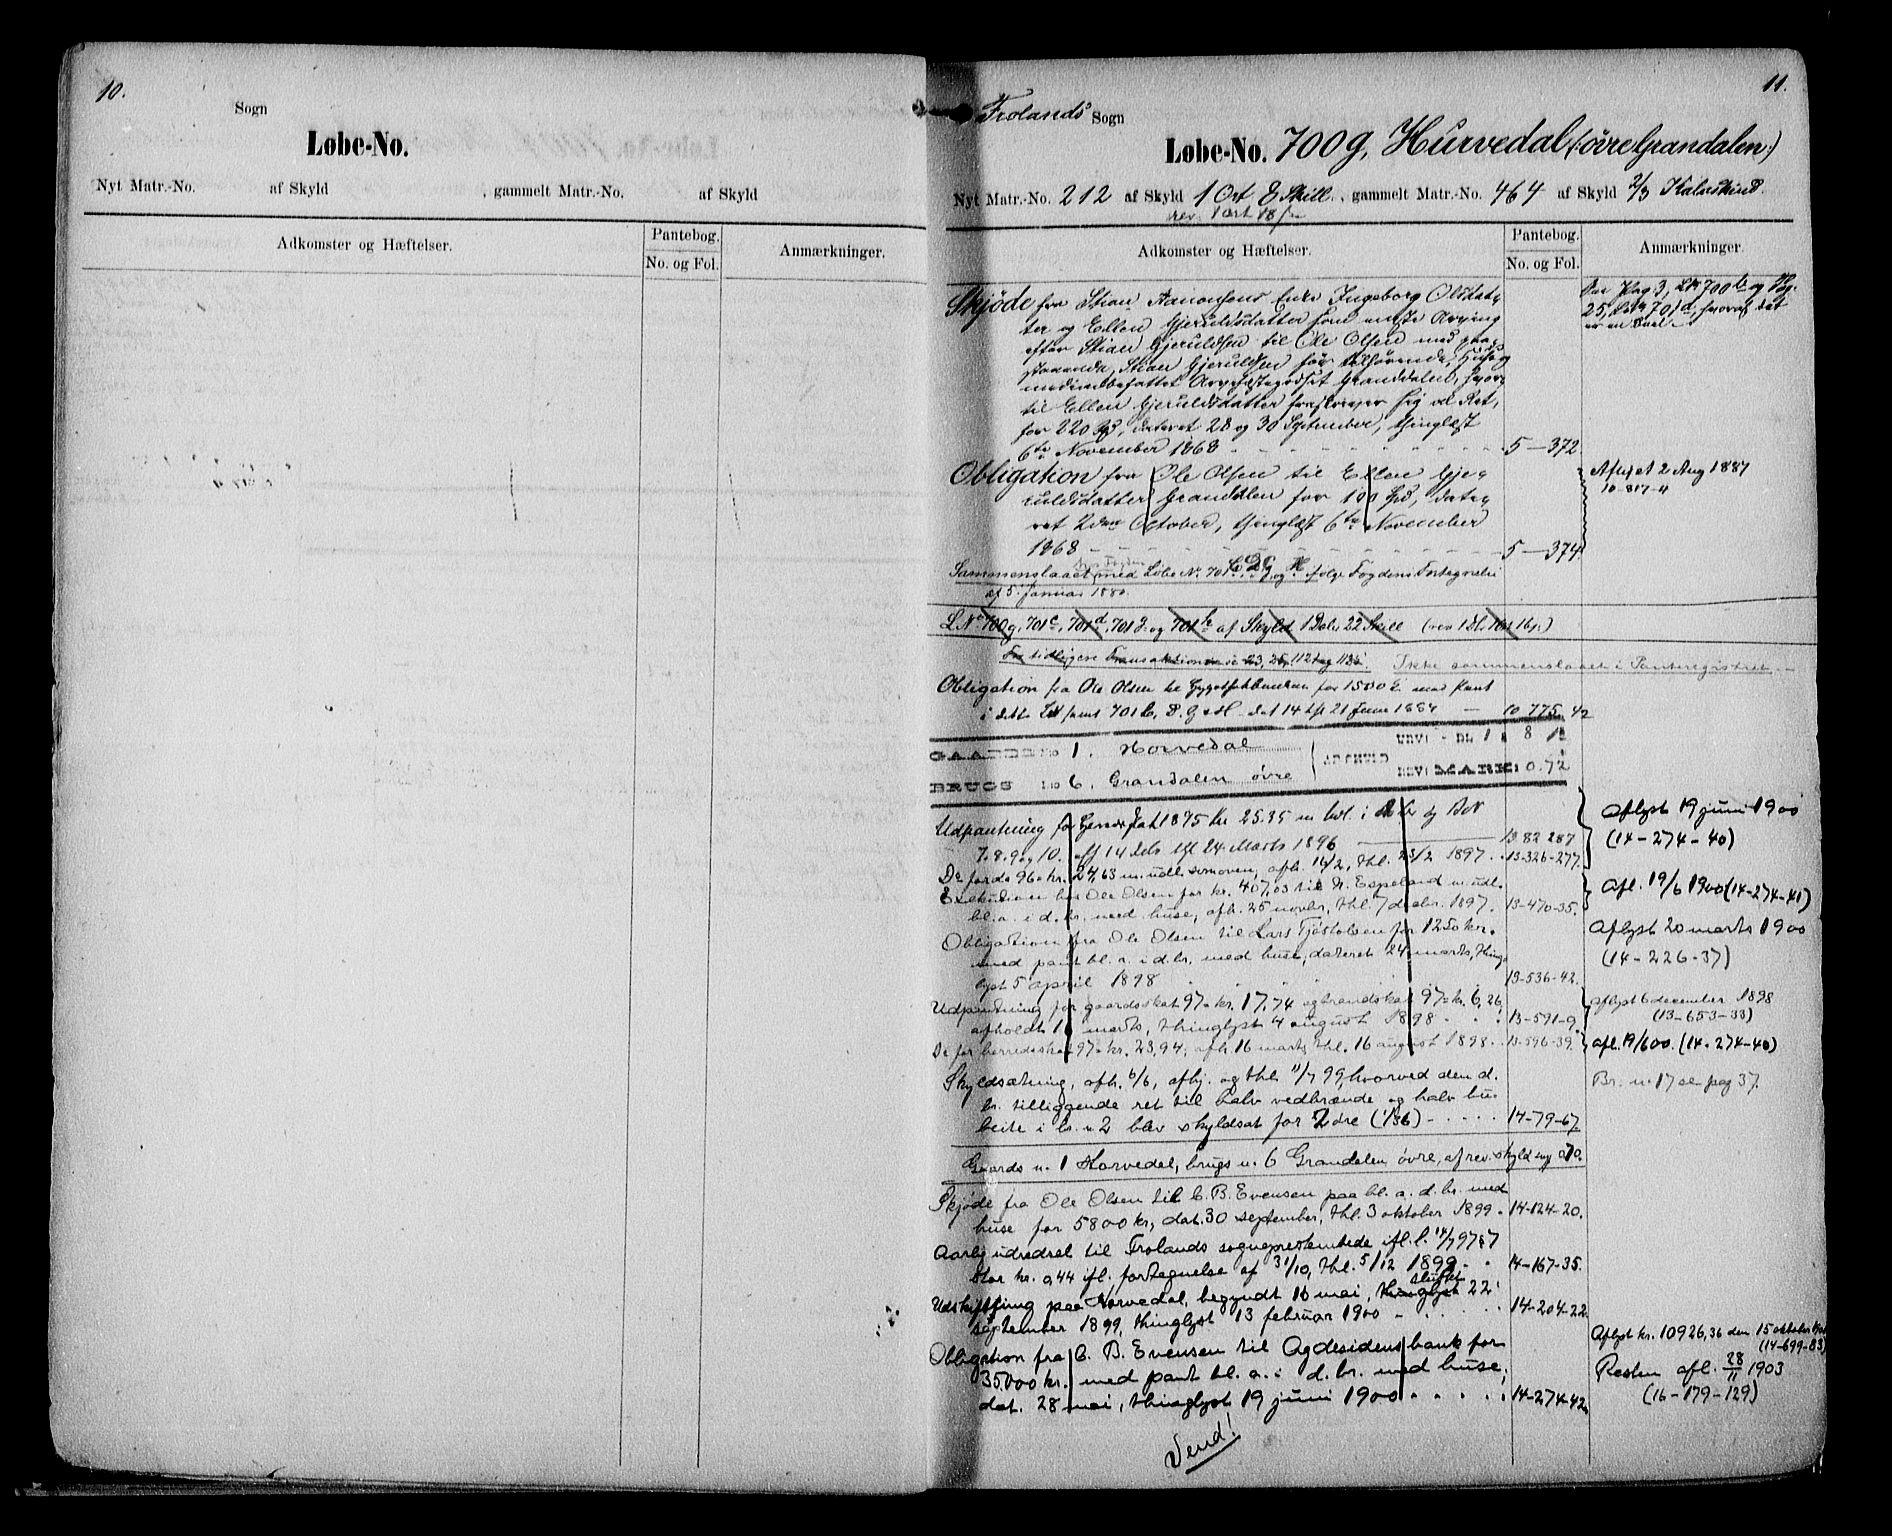 10.
Sogn
Løbe-No.
Nyt Matr.-No. af Skyld , gammelt Matr.-No. af Skyld
Adkomster og Hæftelser.
Pantebog.
No. og Fol.
Anmærkninger.
11.
Frolands Sogn
Løbe-No. 700g, Hurvedal (øvre Grandalen)
Nyt Matr.-No. 212 af Skyld 1 Ort 8 Skill., gammelt Matr.-No. 464 af Skyld 2/3 Kalvskind.
rev. 1 ort 18
Adkomster og Hæftelser.
Pantebog.
No. og Fol.
Anmærkninger.
Skjøde fra Stian Enke Ingeborg Olsdat-
ter og Ellen Gjeruldsdatter som eneste Arving
efter Stian Gjeruldsen til Ole Olsen med paa-
staaende, Stian Gjeruldsen før tilhørende, Huse og
medindbefattet Arvefæstegodset Granddalen, hvor-
til Ellen Gjeruldsdatter fraskriver sig al Ret,
for 220 Spd, dateret 28 og 30 September, thinglæst
6te November 1868 5-372
Obligation fra Ole Olsen til Ellen Gje-
ruldsdatter Granddalen for 100 Spd, date-
ret 2den October, thinglæst 6te November
1868 5-374
Aflyst 2 Aug 1881
10-817-11
Sammenslaaet med Løbe No. 701 C, D, G og H ifølge Fogdens Fortegnelse
af 5. Januar 1880.
L No 700g, 701c, 701d, 701g og 701h af Skyld 1 Daler 22 Skill
For tidligere Transaktioner se 23, 25, 112 og 113.
Ikke sammenslaaet i Panteregistret
Obligation fra Ole Olsen til Hypothekbanken for 1500 Kr med Pant
i dette LN samt 701 C, D, G & H. dat 14 tl 21 Juni 1887 10 775, 42
GAARDS No 1. Horvedal
BRUGS No 6. Grandalen øvre
REV: MARK: 0.72
Udpantning for Herredsskat 1895 Kr. 25.35 m udl. i d. br og B.N
7.8.9 og 10. aff 14 Febr tgl 24 Marts 1896 13 82 287
Do for do 96 kr. 24,63 m. udl. somoven, afh. 16/2, thl. 23/2 1897. 13-326-277.
Aflyst 19 juni 1900
(14-274-40)
Exekution hos Ole Olsen for kr. 407,03 til N. Espeland m. udl.
bl. a. i d. br. med huse, afh. 25 novbr, thl. 7 decbr. 1897. 13-470-35.
Afl. 19/6 1900 (14-274-41)
Obligation fra Ole Olsen til Lars Tjøstolsen for 1250 kr.
med pant bl. a. i d. br. med huse, dateret 24 marts, thing-
lyst 5 april 1898 13-536-42.
Aflyst 20 marts 1900
(14-226-37)
Udpantning for gaardsskat 97 kr. 17,74 og brandskat 97 kr. 6,26,
afholdt 16 marts, thinglyst 4 august 1898 13-591-9.
Aflyst 6 december 1898
(13-653-33)
Do for herredsskat 97 kr. 23,94, afh. 16 marts, thl. 16 august 1898 13-596-39.
afl. 19/6 00. (14-274-40)
Skyldsætning, afh. 6/6, afhj. og thl. 11/7 99, hvorved den d.
br. tilliggende ret til halv vedbrænde og halv bu-
beite i br. n. 2 blev skyldsat for 2 øre (1/36) 14-79-67.
Br. n. 17 se pag 37.
Gaards n. 1 Horvedal, brugs n. 6 Grandalen øvre, af rev. skyld my 0,70.
Skjøde fra Ole Olsen til C. B. Evensen paa bl. a. d. br. med
huse for 5800 kr, dat. 30 september, thl. 3 oktober 1899. 14-124-20.
Aarlig udredsel til Frolands sogneprestembede ifl. l. 14/7 97
stor kr. 0,44 ifl. fortegnelse af 31/10, thl. 5/12 1899. 14-167-35.
Udskiftning paa Horvedal, begyndt 16 mai, sluttet 22
september 1899, thinglyst 13 februar 1900 14-204-22.
Obligation fra C. B. Evensen til Agdesidens bank for
35000 kr. med pant bl. a. i d. br. med huse,
dat. 28 mai, thinglyst 19 juni 1900 14-274-42.
Aflyst kr. 10926,36 den 15 oktober
(14-699-83)
Resten afl. 28/11 1903
(16-179-129)
Vend!